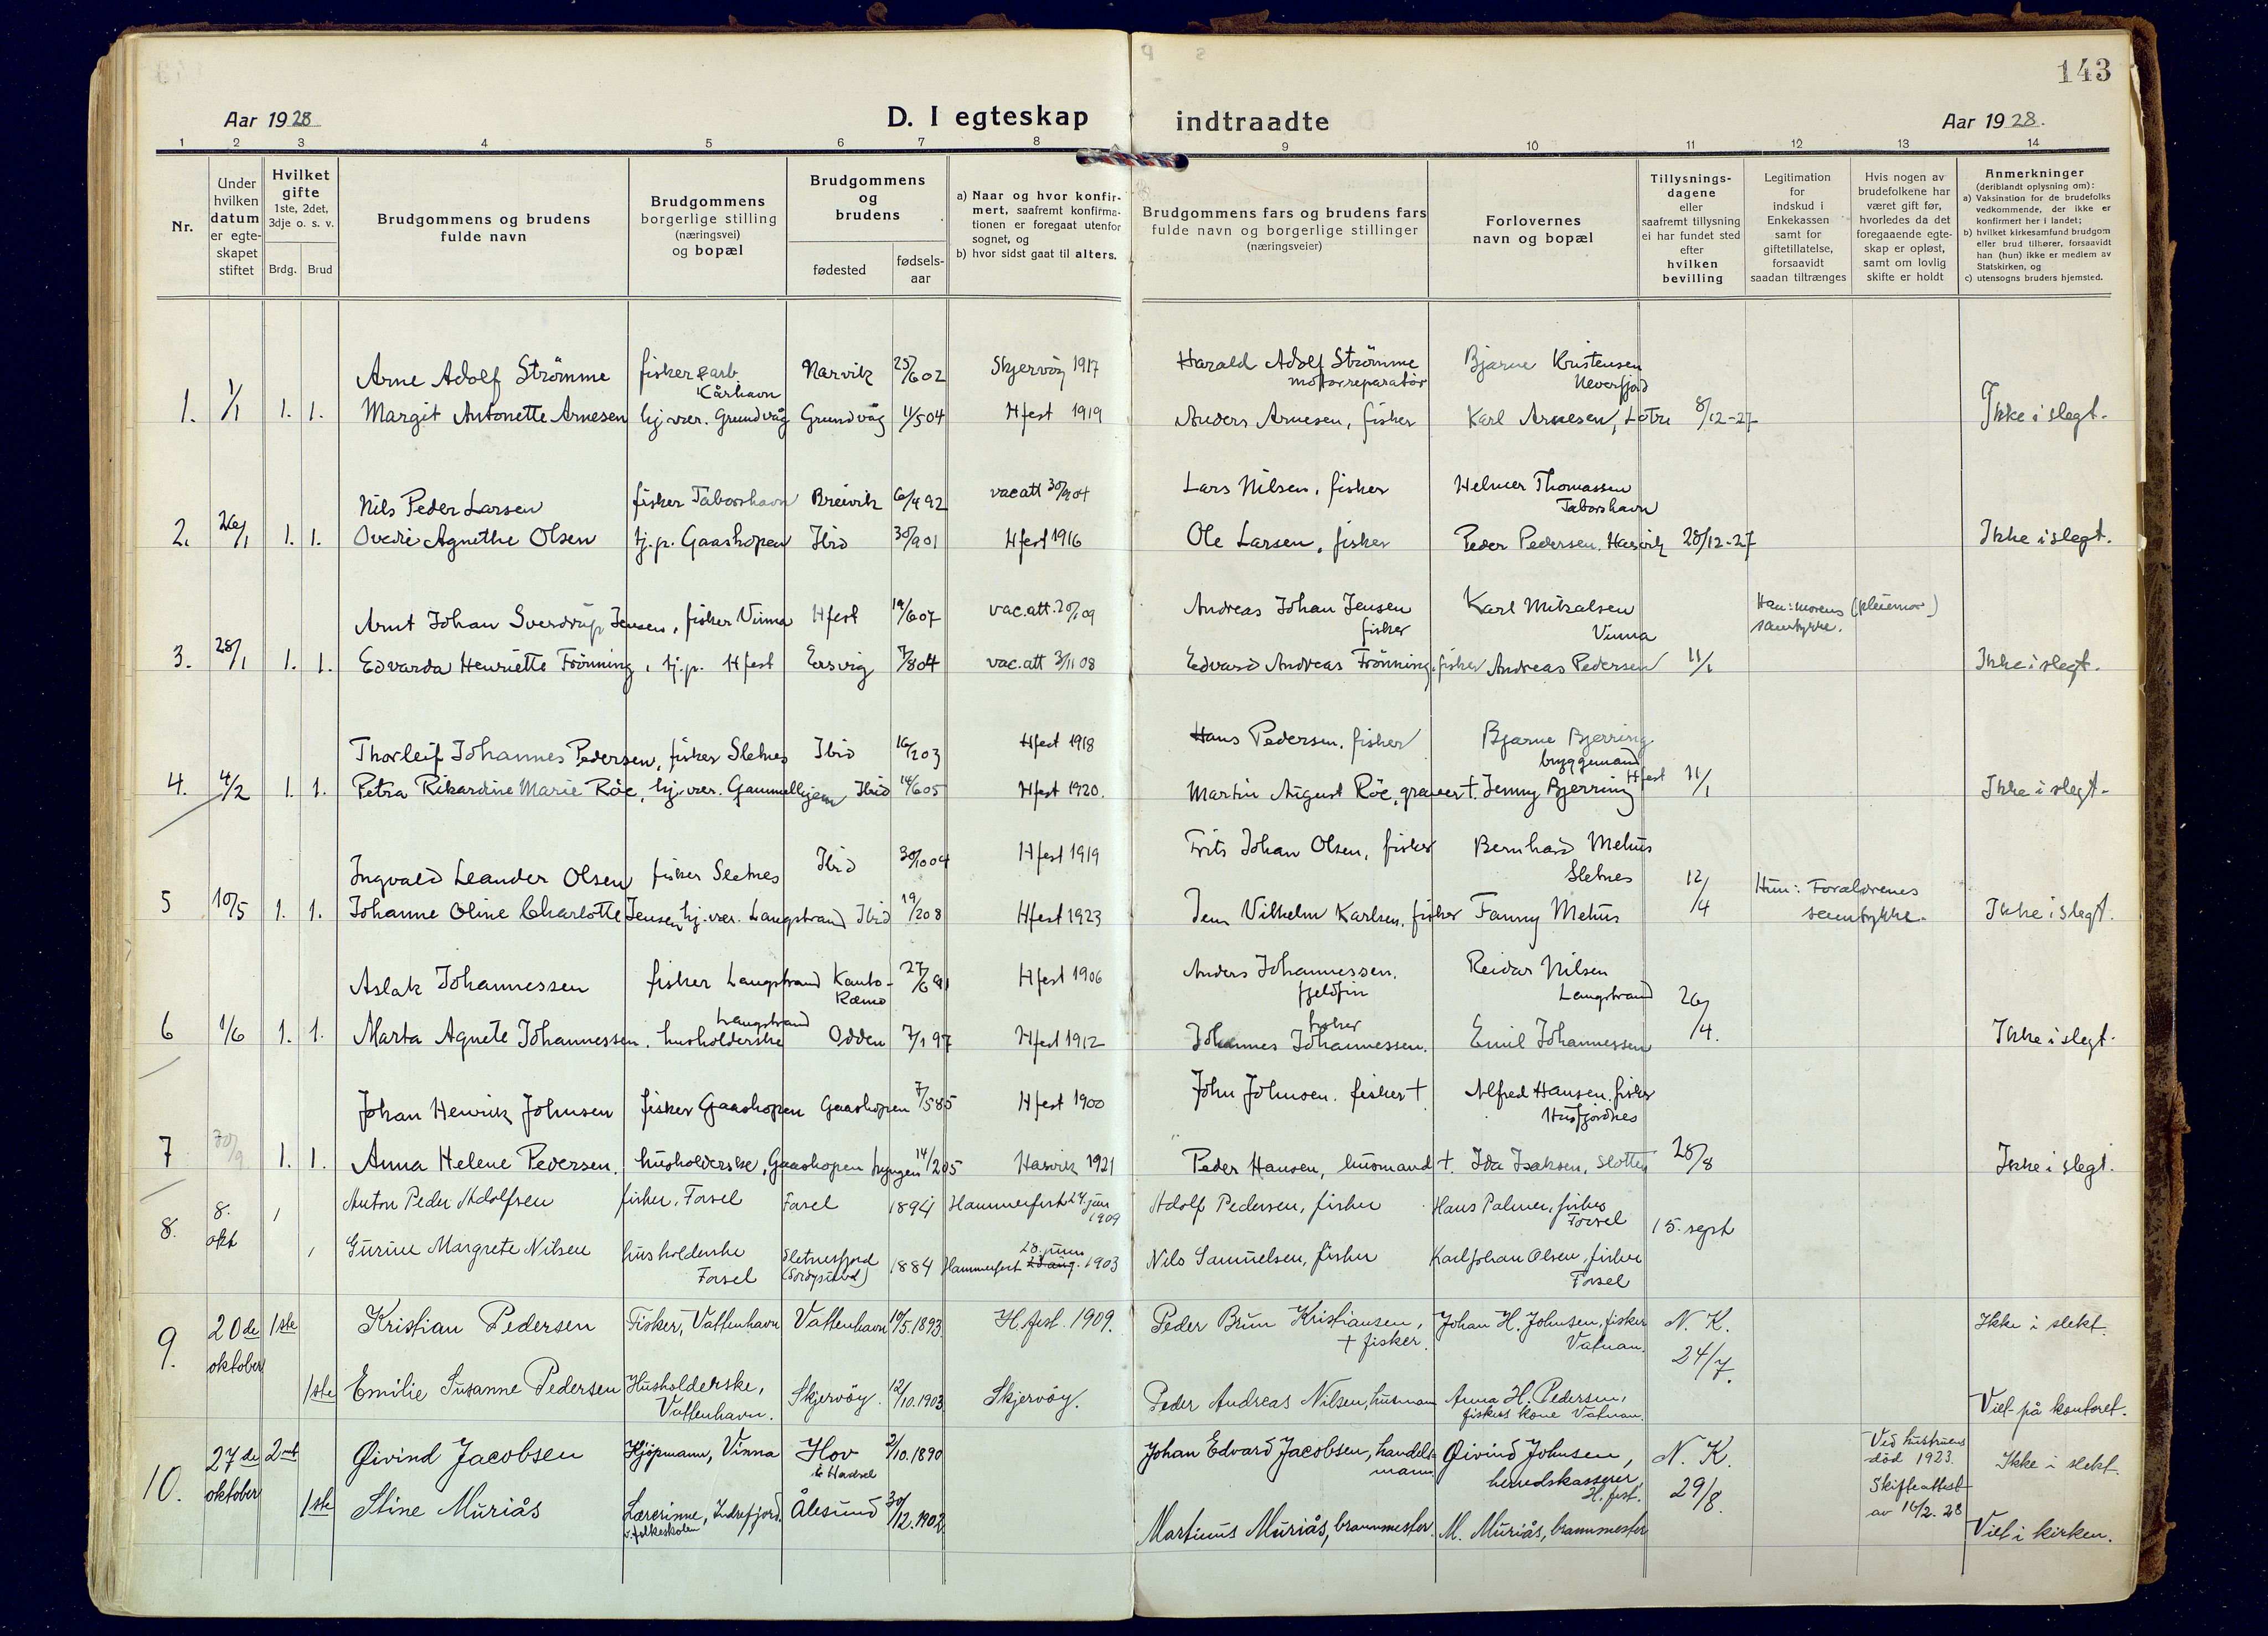 143
Aar 1928
D. I egteskap indtraadte
Aar 1928.
1 2 3 4 5 6 7 8 9 10 11 12 13 14
Nr.
Under hvilken datum er egteskapet stiftet
Hvilket gifte 1ste, 2det, 3dje o. s. v.
Brdg. Brud
Brudgommens og brudens fulde navn
Brudgommens borgerlige stilling (næringsvei) og bopæl
Brudgommens og brudens
fødested
fødselsaar
a) Naar og hvor konfirmert, saafremt konfirmationen er foregaat utenfor sognet, og
b) hvor sidst gaat til alters.
Brudgommens fars og brudens fars fulde navn og borgerlige stillinger (næringsveier)
Forlovernes navn og bopæl
Tillysningsdagene eller saafremt tillysning ei har fundet sted efter hvilken bevilling
Legitimation for indskud i Enkekassen samt for giftetillatelse, forsaavidt saadan tiltrænges
Hvis nogen av brudefolkene har været gift før, hvorledes da det foregaaende egteskap er opløst, samt om lovlig skifte er holdt
Anmerkninger (deriblandt oplysning om):
a) Vaksination for de brudefolks vedkommende, der ikke er konfirmert her i landet;
b) hvilket kirkesamfund brudgom eller brud tilhører, forsaavidt han (hun) ikke er medlem av Statskirken, og
c) utensogns bruders hjemsted.
Arne Adolf Strömme fisker & arb. Kårhavn Narvik 25/6 02 Skjervöy 1917 Harald Adolf Strömme motorreparatör Bjarne Kristensen Neverfjord
1. 1/1 1. 1. Margit Antonette Arnesen hj.vær. Grundvåg Grundvåg 11/5 04 Hfest 1919 Anders Arnesen, fisker Karl Arnesen, Lotre 8/12-27 Ikke i slegt.
Nils Peder Larsen fisker Taborshavn Breivik 6/4 92 vac att 30/9 04 Lars Nilsen, fisker Helmer Thomassen Taborshavn
2. 26/1 1. 1. Ovedie Agnethe Olsen tj.p. Gaashopen Ibid 30/9 01 Hfest 1916 Ole Larsen, fisker Peder Pedersen, Hasvik 28/12-27 Ikke i slegt.
Arnt Johan Sverdrup Jensen, fisker Vinna Hfest 19/6 07 vac.att. 20/1 09 Andreas Johan Jensen fisker Karl Mikalsen Vinna Han: morens (pleiemor) samtykke.
3. 28/1 1. 1. Edvarda Henriette Frönning, tj.p. Hfest Eersvig 7/8 04 vac.att 3/11 08 Edvard Andreas Frönning, fisker Andreas Pedersen 11/1 Ikke i slegt.
Thorleif Johannes Pedersen, fisker Sletnes Ibid 16/2 03 Hfest 1918 Hans Pedersen, fisker Bjarne Bjerring bryggemand Hfest
4. 4/2 1. 1. Petra Rikardine Marie Röe, hj.vær. Gammelhjem Ibid 14/6 05 Hfest 1920. Martin August Röe, graver †. Jenny Bjerring 11/1 Ikke i slegt.
Ingvald Leander Olsen fisker Sletnes Ibid 30/10 04 Hfest 1919 Frits Johan Olsen, fisker Bernhard Mehus Sletnes
5 10/5 1. 1. Johanne Oline Charlotte Jensen hj.vær. Langstrand Ibid 19/2 08 Hfest 1923 Jens Vilhelm Karlsen, fisker Fanny Mehus 12/4 Hun: Forældrenes samtykke. Ikke i slegt.
Aslak Johannessen fisker Langstrand Kautokæino 27/6 91 Hfest 1906 Anders Johannessen. fjeldfin Reidar Nilsen Langstrand
6 1/6 1. 1. Marta Agnete Johannessen. husholderske Langstrand Odden 7/1 97 Hfest 1912 Johannes Johannessen. fisker Emil Johannessen 26/4. Ikke i slegt.
Johan Henrik Johnsen fisker Gaashopen Gaashopen 7/5 85 Hfest 1900 John Johnsen. fisker † Alfred Hansen, fisker Husfjordnes
7 30/9 1. 1. Anna Helene Pedersen. husholderske, Gaashopen Lyngen 14/2 05 Hasvik 1921 Peder Hansen, husmand †. Ida Isaksen, Slotten 28/8 Ikke i slegt.
Anton Peder Adolfsen fisker, Forsel Forsel 1894 Hammerfest 24. jun 1909 Adolf Pedersen, fisker Hans Palmer, fisker Forsel
8. 8. okt 15. sept
Gurine Margrete Nilsen husholderske Forsel Sletnesfjord 1884 Hammerfest 28. juni 1903 Nils Samuelsen, fisker Karl Johan Olsen, fisker Forsel
9. 20de oktober 1ste Kristian Pedersen Fisker, Vattenhavn Vattenhavn 10/5.1893 H.fest. 1909. Peder Brun Kristiansen, † fisker. Johan H. Johnsen, fisker Vatnan. N. K. 24/7. Ikke i slekt.
1ste Emilie Susanne Pedersen Husholderske, Vattenhavn. Skjervöy. 12/10.1903 Skjervöy. Peder Andreas Nilsen, husmann Anna H. Pedersen, fiskers kone Vatnan. Viet på kontoret.
10. 27de oktober 2net Øivind Jacobsen Kjöpmann, Vinna Hov i Hadsel 2/10.1890 Johan Edvard Jacobsen, handelsmann Øivind Johnsen, herredskasserer, H.fest. N. K. 29/8. Ved hustruens död 1923. Skifteattest av 16/2. 28 Ikke i slekt.
1ste Stine Muriås Lærerinne, v. folkeskolen Indrefjord. Ålesund 30/12.1902 Martinus Muriås, brannmester. M. Muriås, brannmester Viet i kirken.